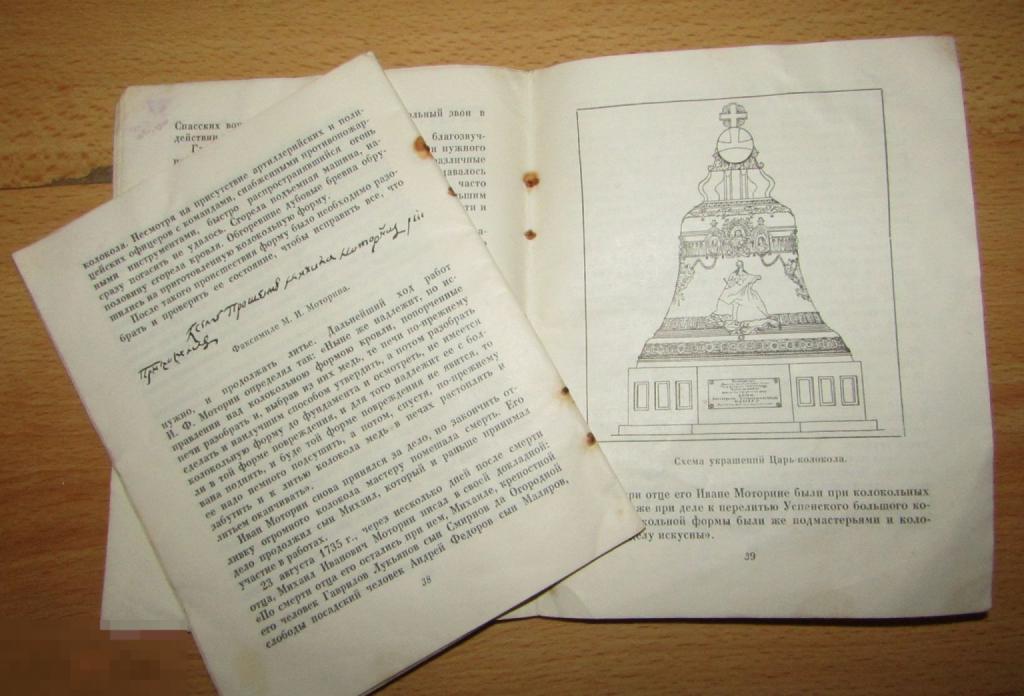 колокола. Несмотря на присутствие артиллерийских и поли-
цейских офицеров с командами, снабженными противопожар-
ными инструментами, быстро распространившийся огонь
сразу погасить не удалось. Сгорела подъемная машина, на-
половину сгорела кровля. Обгоревшие дубовые бревна обру-
шились на приготовленную колокольную форму.
После такого происшествия форму было необходимо разо-
брать и проверить ее состояние, чтобы исправить все, что
Факсимиле М. И. Моторина.
нужно, и продолжать литье. Дальнейший ход работ
И. Ф. Моторин определил так: «Ныне же надлежит, но ис-
правлении над колокольною формою кровли, попорченные
печи разобрать и, выбрав из них медь, те печи по-прежнему
сделать и наилучшим способом утвердить, а потом разобрать
колокольную форму до фундамента и осмотреть, не имеется
ли в той форме повреждения, и для того надлежит ее с бол-
вана поднять, и буде той форме повреждения не явится, то
ее надо немного подсушить, а потом, спустя, по-прежнему
забутить и к литью колокола медь в печах растоплять и
литьем оканчивать».
Иван Моторин снова принялся за дело, но закончить от-
ливку огромного колокола мастеру помешала смерть. Его
дело продолжил сын Михаил, который и раньше принимал
участие в работах.
23 августа 1735 г., через несколько дней после смерти
отца, Михаил Иванович Моторин писал в своей докладной:
«По смерти отца его остались при нем, Михаиле, крепостной
его человек Гаврилов Лукьянов сын Смирнов да Огородной
слободы посадский человек Андрей Федоров сын Маляров,
38
Спасских
льный звон в
действии
благозвуч-
и нужного
различные
давалось
часто
ьшим
ти и
Схема украшений Царь-колокола.
ри отце его Иване Моторине были при колокольных
же при деле к перелитью Успенского большого ко-
кольной формы были же подмастерьями и коло-
делу искусны».
39